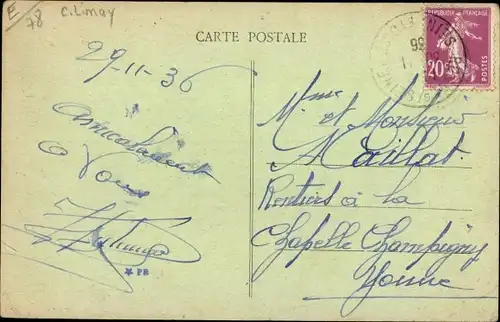 E
78
C. Limay
CARTE POSTALE
REPUBLIQUE FRANÇAISE
20c
POSTES
29-11-36
Amicalement
à Vous
Mme et Monsieur
Maillat
Rentiers à la
Chapelle Champigny
Yonne
PB